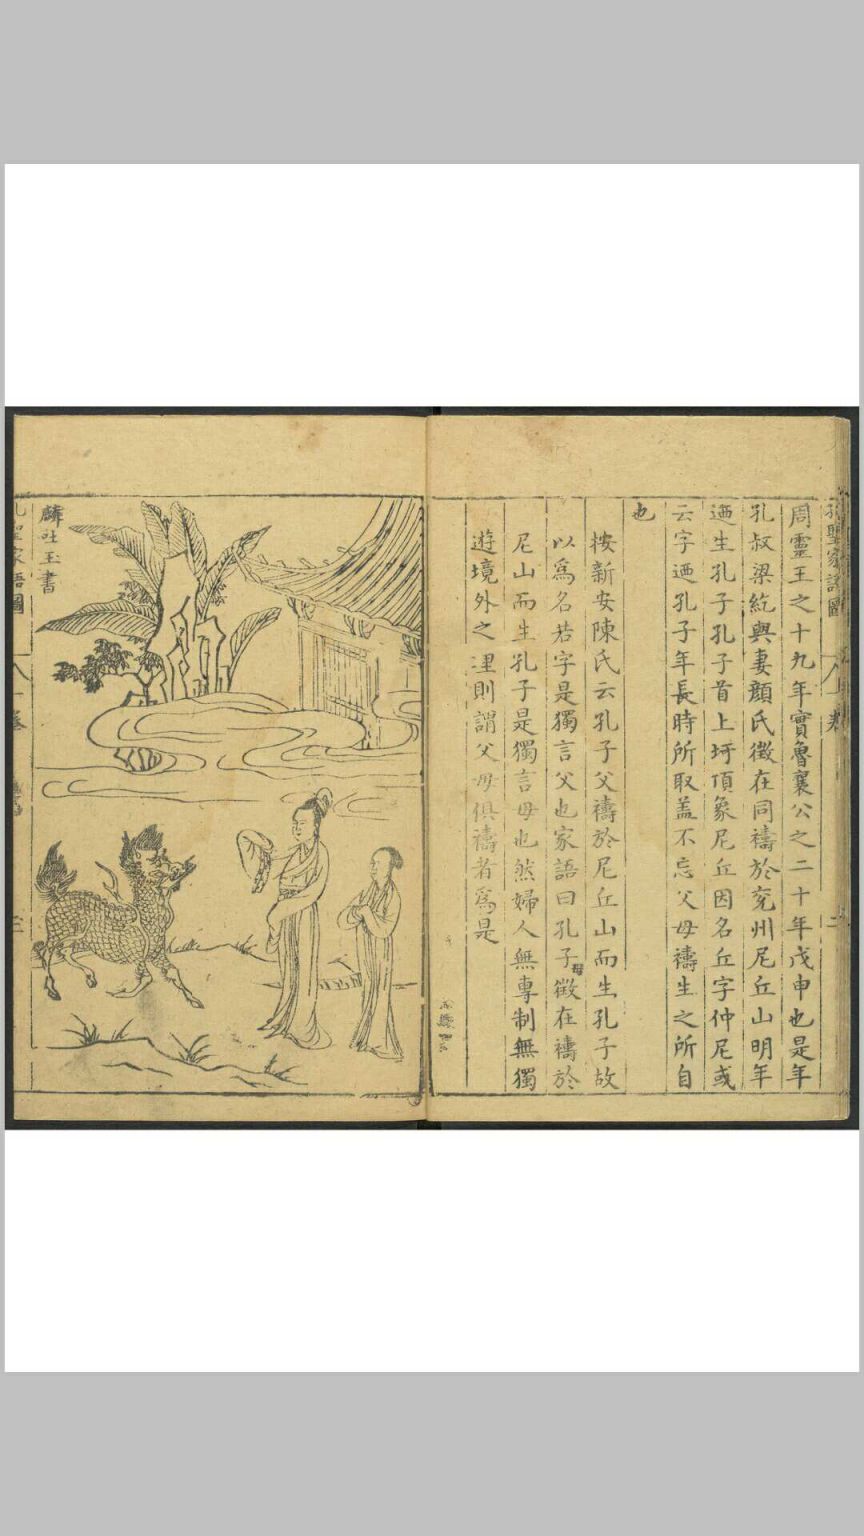 孔聖家語圖
周靈王之十九年實魯襄公之二十年戊申也是年
孔叔梁紇與妻顏氏徵在同禱於兗州尼丘山明年
迺生孔子孔子首上圩頂象尼丘因名丘字仲尼或
云字迺孔子年長時所取盖不忘父母禱生之所自
也
按新安陳氏云孔子父禱於尼丘山而生孔子故
以爲名若字是獨言父也家語曰孔子母徵在禱於
尼山而生孔子是獨言母也然婦人無專制無獨
遊境外之理則謂父母俱禱者爲是
麟吐玉書
孔聖家語圖